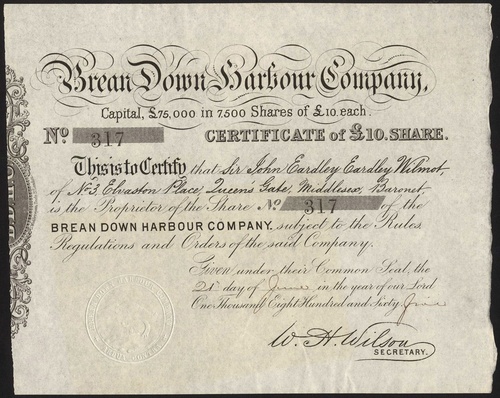 Brean Down Harbour Company,
Capital, £75,000 in 7500 Shares of £10 each.
No 317 CERTIFICATE of £10. SHARE.
This is to Certify that Sir John Eardley Eardley Wilmot,
of No 3, Elvaston Place, Queen's Gate, Middlesex, Baronet
is the Proprietor of the Share No 317 of the
BREAN DOWN HARBOUR COMPANY, subject to the Rules
Regulations and Orders of the said Company.
Given under their Common Seal, the
21st day of June in the year of our Lord
One Thousand Eight Hundred and Sixty five
W. H. Wilson
SECRETARY.